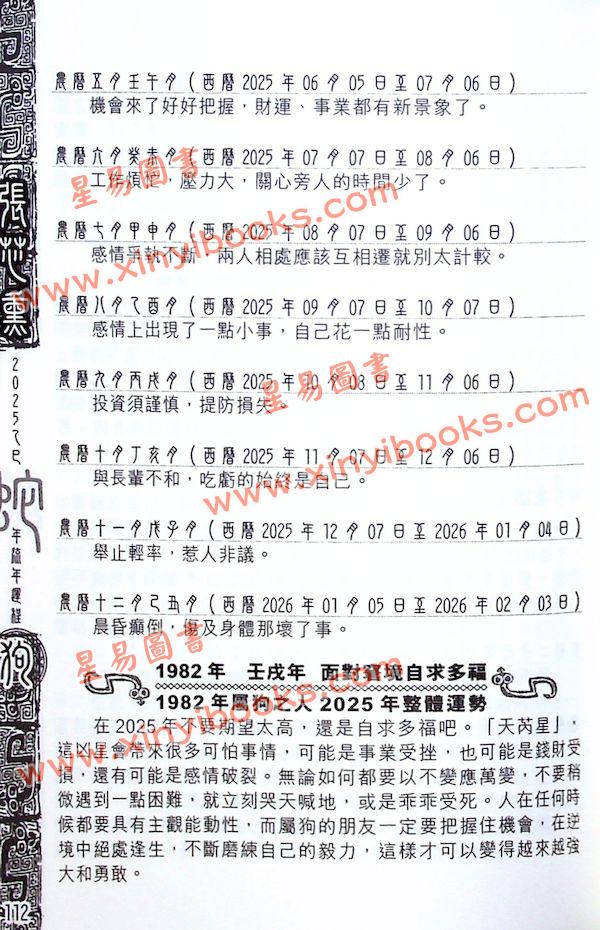 農曆五月壬午月(西曆 2025 年 06 月 05 日至 07 月 06 日)
機會來了好好把握,財運、事業都有新景象了。
農曆六月癸未月(西曆 2025 年 07 月 07 日至 08 月 06 日)
工作煩忙,壓力大,關心旁人的時間少了。
農曆七月甲申月(西曆 2025 年 08 月 07 日至 09 月 06 日)
感情爭執不斷,兩人相處應該互相遷就別太計較。
農曆八月乙酉月(西曆 2025 年 09 月 07 日至 10 月 07 日)
感情上出現了一點小事,自己花一點耐性。
農曆九月丙戌月(西曆 2025 年 10 月 08 日至 11 月 06 日)
投資須謹慎,提防損失。
農曆十月丁亥月(西曆 2025 年 11 月 07 日至 12 月 06 日)
與長輩不和,吃虧的始終是自己。
農曆十一月戊子月(西曆 2025 年 12 月 07 日至 2026 年 01 月 04 日)
舉止輕率,惹人非議。
農曆十二月己丑月(西曆 2026 年 01 月 05 日至 2026 年 02 月 03 日)
晨昏癲倒,傷及身體那壞了事。
1982 年 壬戌年 面對窘境自求多福
1982 年屬狗之人 2025 年整體運勢
在 2025 年不要期望太高,還是自求多福吧。「天芮星」,
這凶星會帶來很多可怕事情,可能是事業受挫,也可能是錢財受
損,還有可能是感情破裂。無論如何都要以不變應萬變,不要稍
微遇到一點困難,就立刻哭天喊地,或是乖乖受死。人在任何時
候都要具有主觀能動性,而屬狗的朋友一定要把握住機會,在逆
境中絕處逢生,不斷磨練自己的毅力,這樣才可以變得越來越強
大和勇敢。
張芯熏
2025乙巳
蛇
年流年運程
狗
112
星易圖書
www.xinyibooks.com
星易圖書
www.xinyibooks.com
星易圖書
www.xinyibooks.com